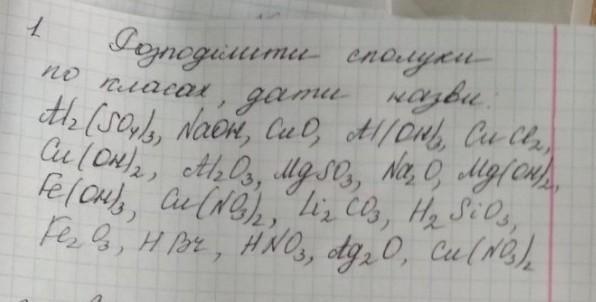 1 Розподілити сполуки
по класах, дати назви:
Al₂(SO₄)₃, NaOH, CuO, Al(OH)₃, CuCl₂,
Cu(OH)₂, Al₂O₃, MgSO₃, Na₂O, Mg(OH)₂,
Fe(OH)₃, Cu(NO₃)₂, Li₂CO₃, H₂SiO₃,
Fe₂O₃, HBr, HNO₃, Ag₂O, Cu(NO₃)₂